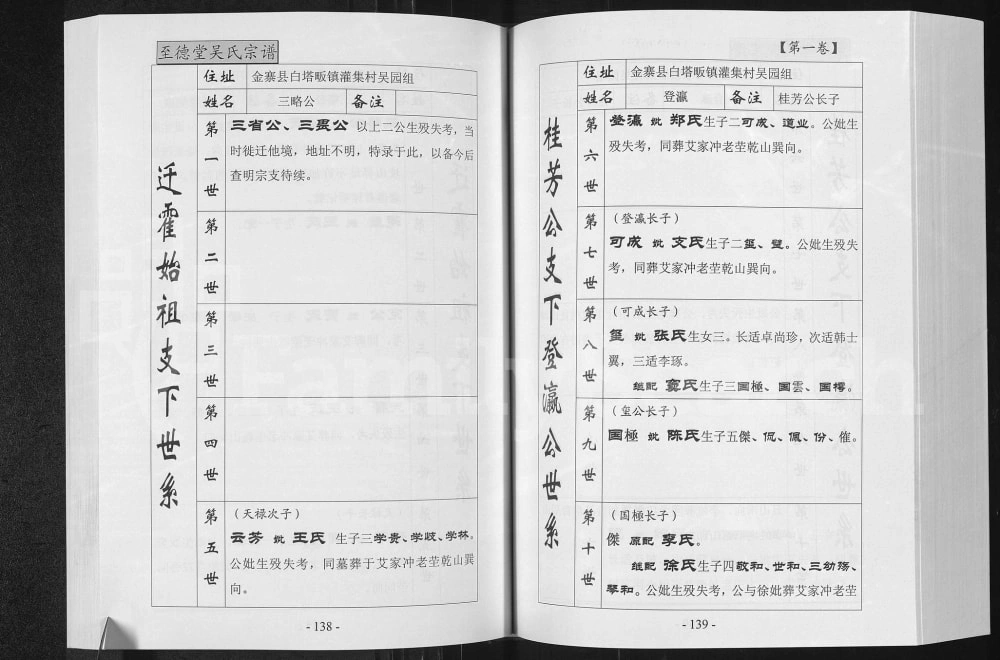 至德堂吴氏宗谱
住址 金寨县白塔畈镇灌集村吴园组
姓名 三略公 备注
迁霍始祖支下世系
第一世
三省公、三晸公 以上二公生殁失考，当
时徙迁他境，地址不明，特录于此，以备今后
查明宗支待续。
第二世
第三世
第四世
第五世
（天禄次子）
云芳 妣 王氏 生子三学贵、学岐、学林。
公妣生殁失考，同墓葬于艾家冲老茔乾山巽
向。
- 138 -
【第一卷】
住址 金寨县白塔畈镇灌集村吴园组
姓名 登瀛 备注 桂芳公长子
桂芳公支下登瀛公世系
第六世
登瀛 妣 郑氏生子二可成、道业。公妣生
殁失考，同葬艾家冲老茔乾山巽向。
第七世
（登瀛长子）
可成 妣 支氏生子二玺、璧。公妣生殁失
考，同葬艾家冲老茔乾山巽向。
第八世
（可成长子）
玺 妣 张氏生女三。长适卓尚珍，次适韩士
翼，三适李琢。
继配 窦氏生子三国極、国雲、国樗。
第九世
（玺公长子）
国極 妣 陈氏生子五傑、侃、佩、份、傕。
第十世
（国極长子）
傑 原配 李氏。
继配 徐氏生子四敬和、世和、三幼殇、
琴和。公妣生殁失考，公与徐妣葬艾家冲老茔
- 139 -